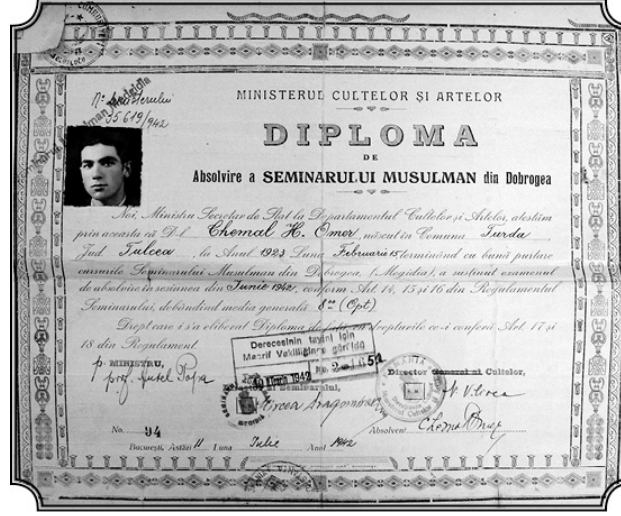 Nº Ministerului
35619/942
MINISTERUL CULTELOR ȘI ARTELOR
DIPLOMA
DE
Absolvire a SEMINARULUI MUSULMAN din Dobrogea
Noi, Ministru Secretar de Stat la Departamentul Cultelor și Artelor, atestăm
prin aceasta că D-l Chemal H. Omer, născut în Comuna Turda
Jud Tulcea, la Anul 1923 Luna Februarie 15 terminând cu bună purtare
cursurile Seminarului Musulman din Dobrogea, (Megidia), a susținut examenul
de absolvire în sesiunea din Iunie 1942, conform Art. 14, 15 și 16 din Regulamentul
Seminarului, dobândind media generală 8 (Opt)
Drept care i s'a eliberat Diploma de față, cu drepturile ce-i conferă Art. 17 și
18 din Regulament
Derecesinin tayini için
Maarif Vekilliğince görüldü
1942 No.
p. MINISTRU,
prof. Popa
Director Cultelor,
Seminarului,
Mircea
No. 94
Absolvent
București, Astăzi 11 Luna Iulie Anul 1942